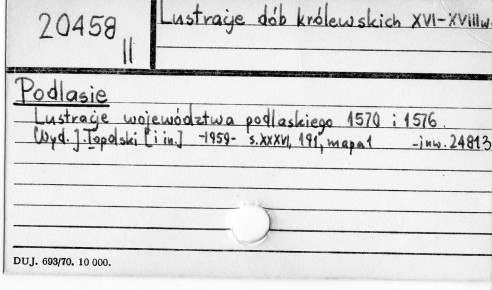 20458
II
Lustracje dób królewskich XVI-XVIII w.
Podlasie
Lustracje województwa podlaskiego 1570 i 1576.
[Wyd.] J. Topolski [i in.] -1959- s. XXXVI, 191, mapa 1 -inw. 24813
DUJ. 693/70. 10 000.